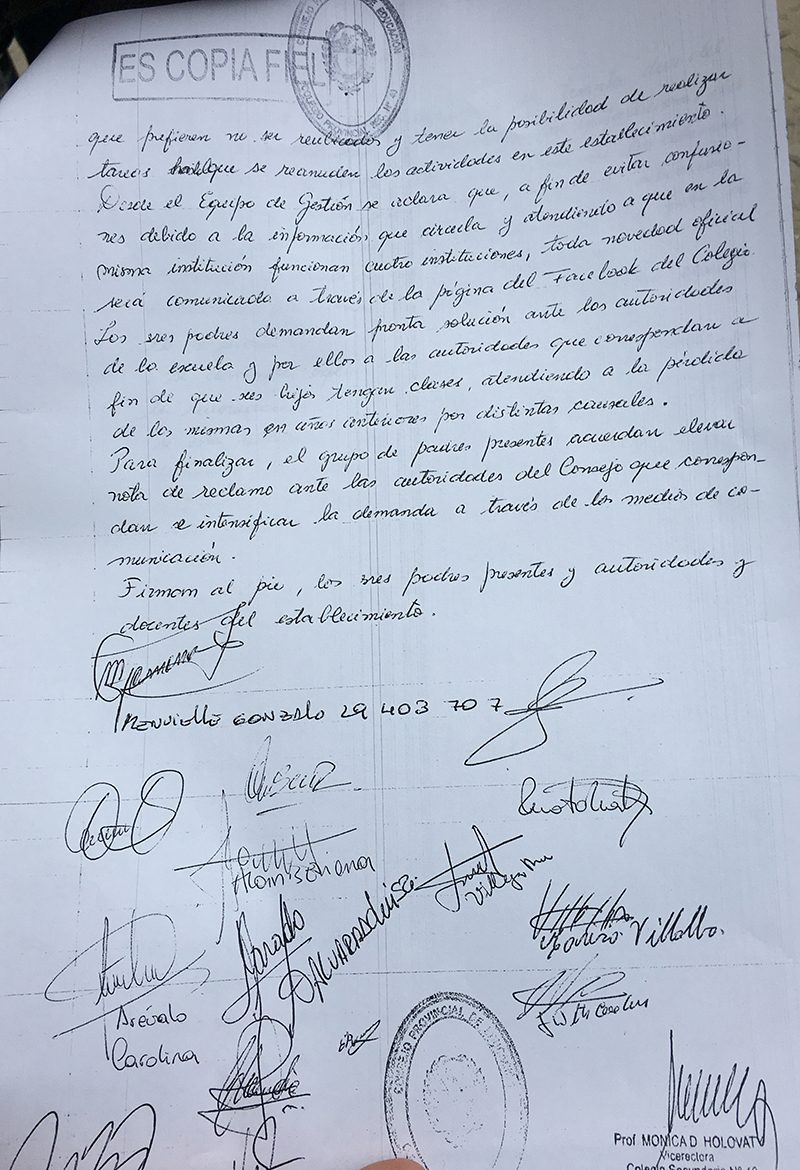 ES COPIA FIEL
CONSEJO PROVINCIAL DE EDUCACIÓN
que prefieren no ser reubicados y tener la posibilidad de realizar
tareas hasta que se reanuden las actividades en este establecimiento.
Desde el Equipo de Gestión se aclara que, a fin de evitar confusio-
nes debido a la información que circula y atendiendo a que en la
misma institución funcionan cuatro instituciones, toda novedad oficial
será comunicada a través de la página del Facebook del Colegio.
Los sres padres demandan pronta solución ante las autoridades
de la escuela y por ellos a las autoridades que correspondan a
fin de que sus hijos tengan clases, atendiendo a la pérdida
de las mismas en años anteriores por distintas causales.
Para finalizar, el grupo de padres presentes acuerdan elevar
nota de reclamo ante las autoridades del Consejo que correspon-
dan e intensificar la demanda a través de los medios de co-
municación.
Firman al pie, los sres padres presentes y autoridades y
docentes del establecimiento.
GONZALO 29 403 707
Villalba.
Arévalo
Carolina
CONSEJO PROVINCIAL DE EDUCACIÓN
Prof MONICA D HOLOVATY
Vicerectora
Colegio Secundario Nº